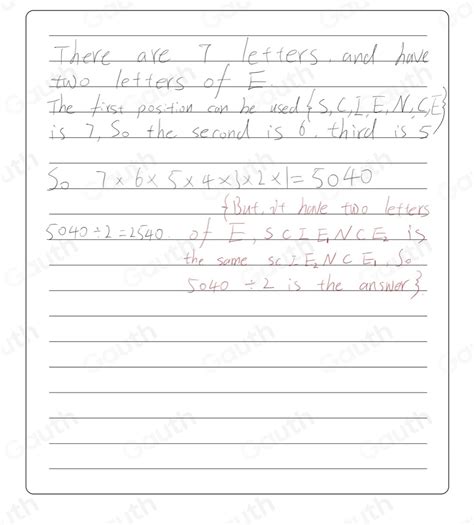 There are 7 letters. and have
two letters of E
The first position can be used {S, C, I, E, N, C, E}
is 7, So the second is 6. third is 5
So 7×6×5×4×3×2×1=5040
{But, it have two letters
5040÷2=2540. of E, S C I E₁ N C E₂ is
the same sc I E₂ N C E₁, So
5040 ÷2 is the answer}